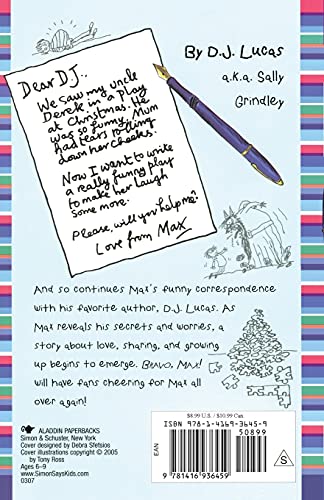 By D.J. Lucas
a.k.a. Sally
Grindley
Dear D.J.,
We saw my uncle
Derek in a play
at Christmas. He
was so funny, Mum
had tears rolling
down her cheeks.
Now I want to write
a really funny play
to make her laugh
some more.
Please, will you help me?
Love from Max
And so continues Max's funny correspondence
with his favorite author, D.J. Lucas. As
Max reveals his secrets and worries, a
story about love, sharing, and growing
up begins to emerge. Bravo, Max!
will have fans cheering for Max all
over again!
ALADDIN PAPERBACKS
Simon & Schuster, New York
Cover designed by Debra Sfetsios
Cover illustrations copyright © 2005
by Tony Ross
Ages 6–9
www.SimonSaysKids.com
0307
$8.99 U.S. / $10.99 Can.
ISBN 978-1-4169-3645-9
50899
EAN
9 781416 936459
S